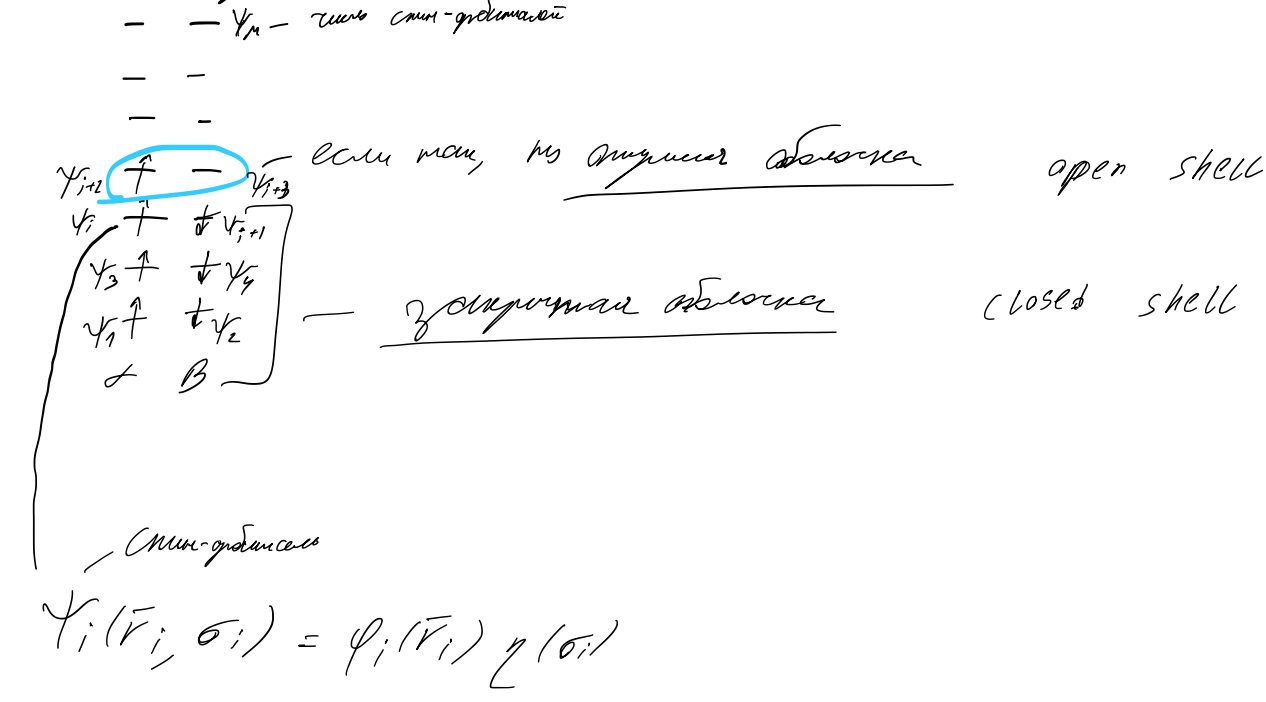 ψ_M – число спин-орбиталей
ψ_{i+2} ψ_{i+3} если так, то открытая оболочка open shell
ψ_i ψ_{i+1}
ψ_3 ψ_4
закрытая оболочка closed shell
ψ_1 ψ_2
α β
Спин-орбиталь
ψ_i(r̄_i, σ_i) = φ_i(r̄_i) η(σ_i)